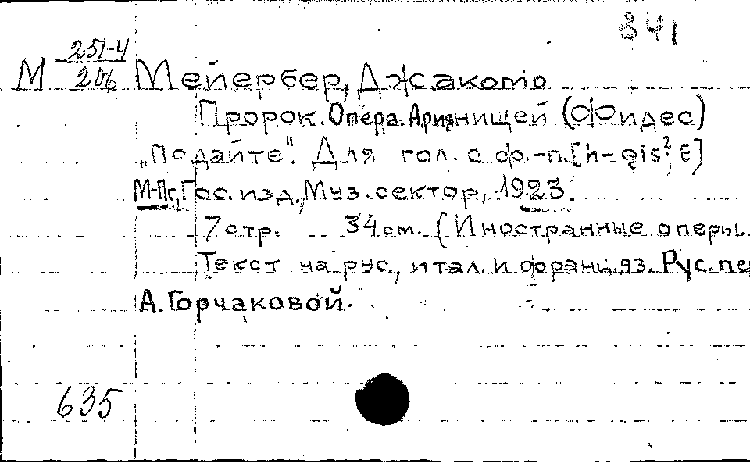 341
М 251-4/206 Мейербер, Джакомо
Пророк. Опера. Ария нищей (Фидес)
"Подайте". Для гол. с ф.-п. [h-gis²; E]
М-Пг, Гос. изд., Муз. сектор, 1923.
7 стр. 34 см. (Иностранные оперы.
Текст на рус., итал. и франц. яз. Рус. пе
А. Горчаковой.
635